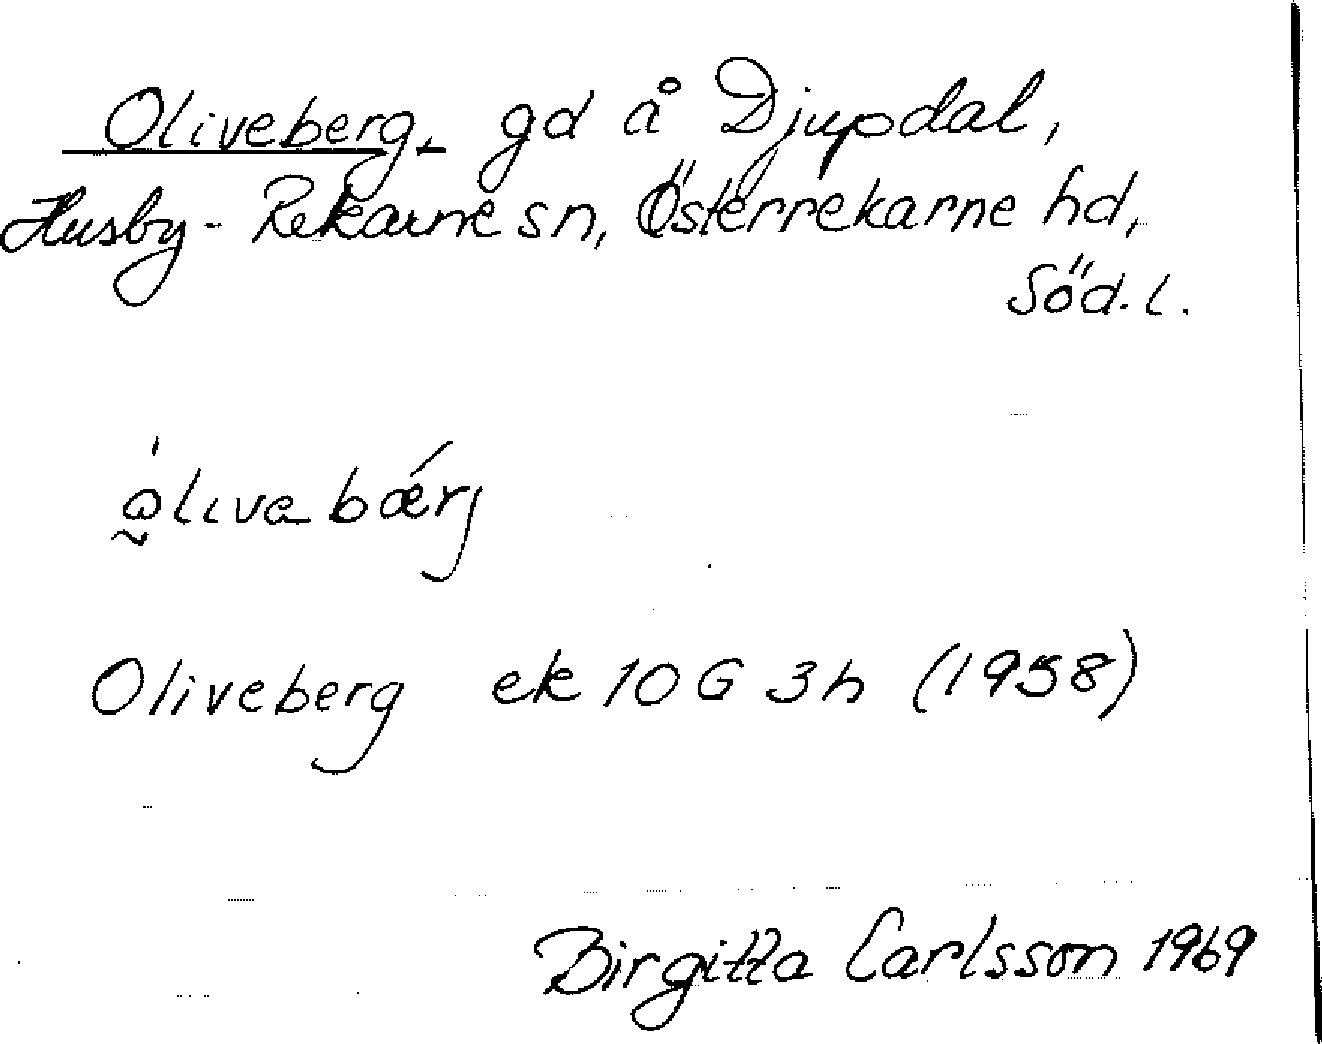 Oliveberg, gd å Djupdal,
Husby-Rekarne sn, Österrekarne hd,
Söd. l.
Oliveberg ek 10 G 3h (1958)
Birgitta Carlsson 1969